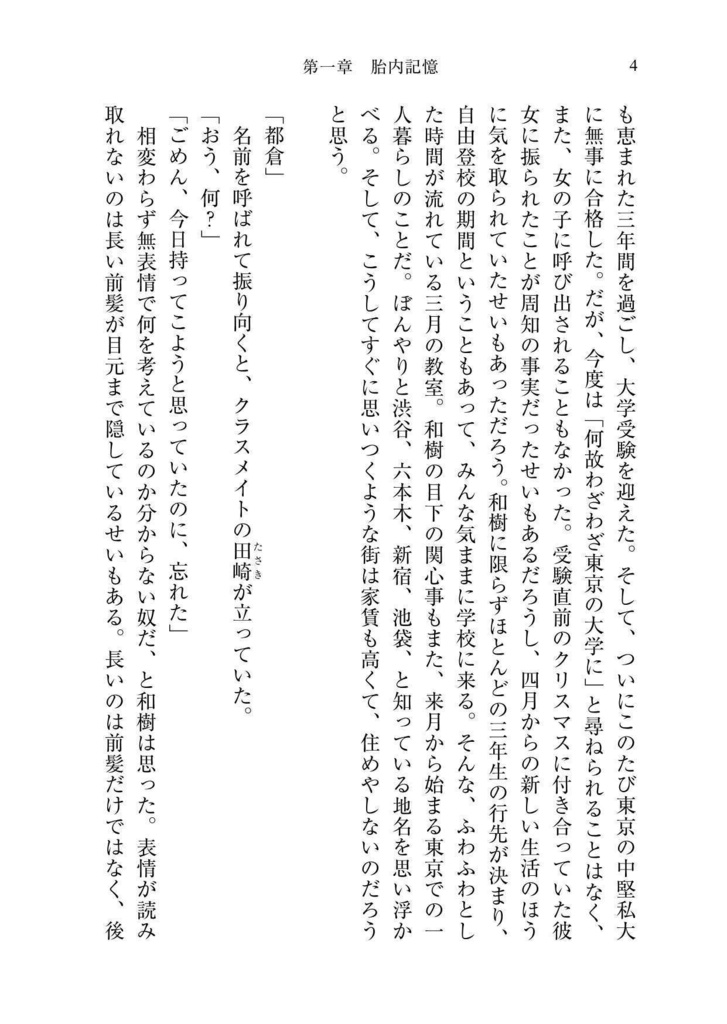 第一章　胎内記憶
4
も恵まれた三年間を過ごし、大学受験を迎えた。そして、ついにこのたび東京の中堅私大
に無事に合格した。だが、今度は「何故わざわざ東京の大学に」と尋ねられることはなく、
また、女の子に呼び出されることもなかった。受験直前のクリスマスに付き合っていた彼
女に振られたことが周知の事実だったせいもあるだろうし、四月からの新しい生活のほう
に気を取られていたせいもあっただろう。和樹に限らずほとんどの三年生の行先が決まり、
自由登校の期間ということもあって、みんな気ままに学校に来る。そんな、ふわふわとし
た時間が流れている三月の教室。和樹の目下の関心事もまた、来月から始まる東京での一
人暮らしのことだ。ぼんやりと渋谷、六本木、新宿、池袋、と知っている地名を思い浮か
べる。そして、こうしてすぐに思いつくような街は家賃も高くて、住めやしないのだろう
と思う。
「都倉」
名前を呼ばれて振り向くと、クラスメイトの田崎が立っていた。
たさき
「おう、何？」
「ごめん、今日持ってこようと思っていたのに、忘れた」
相変わらず無表情で何を考えているのか分からない奴だ、と和樹は思った。表情が読み
取れないのは長い前髪が目元まで隠しているせいもある。長いのは前髪だけではなく、後